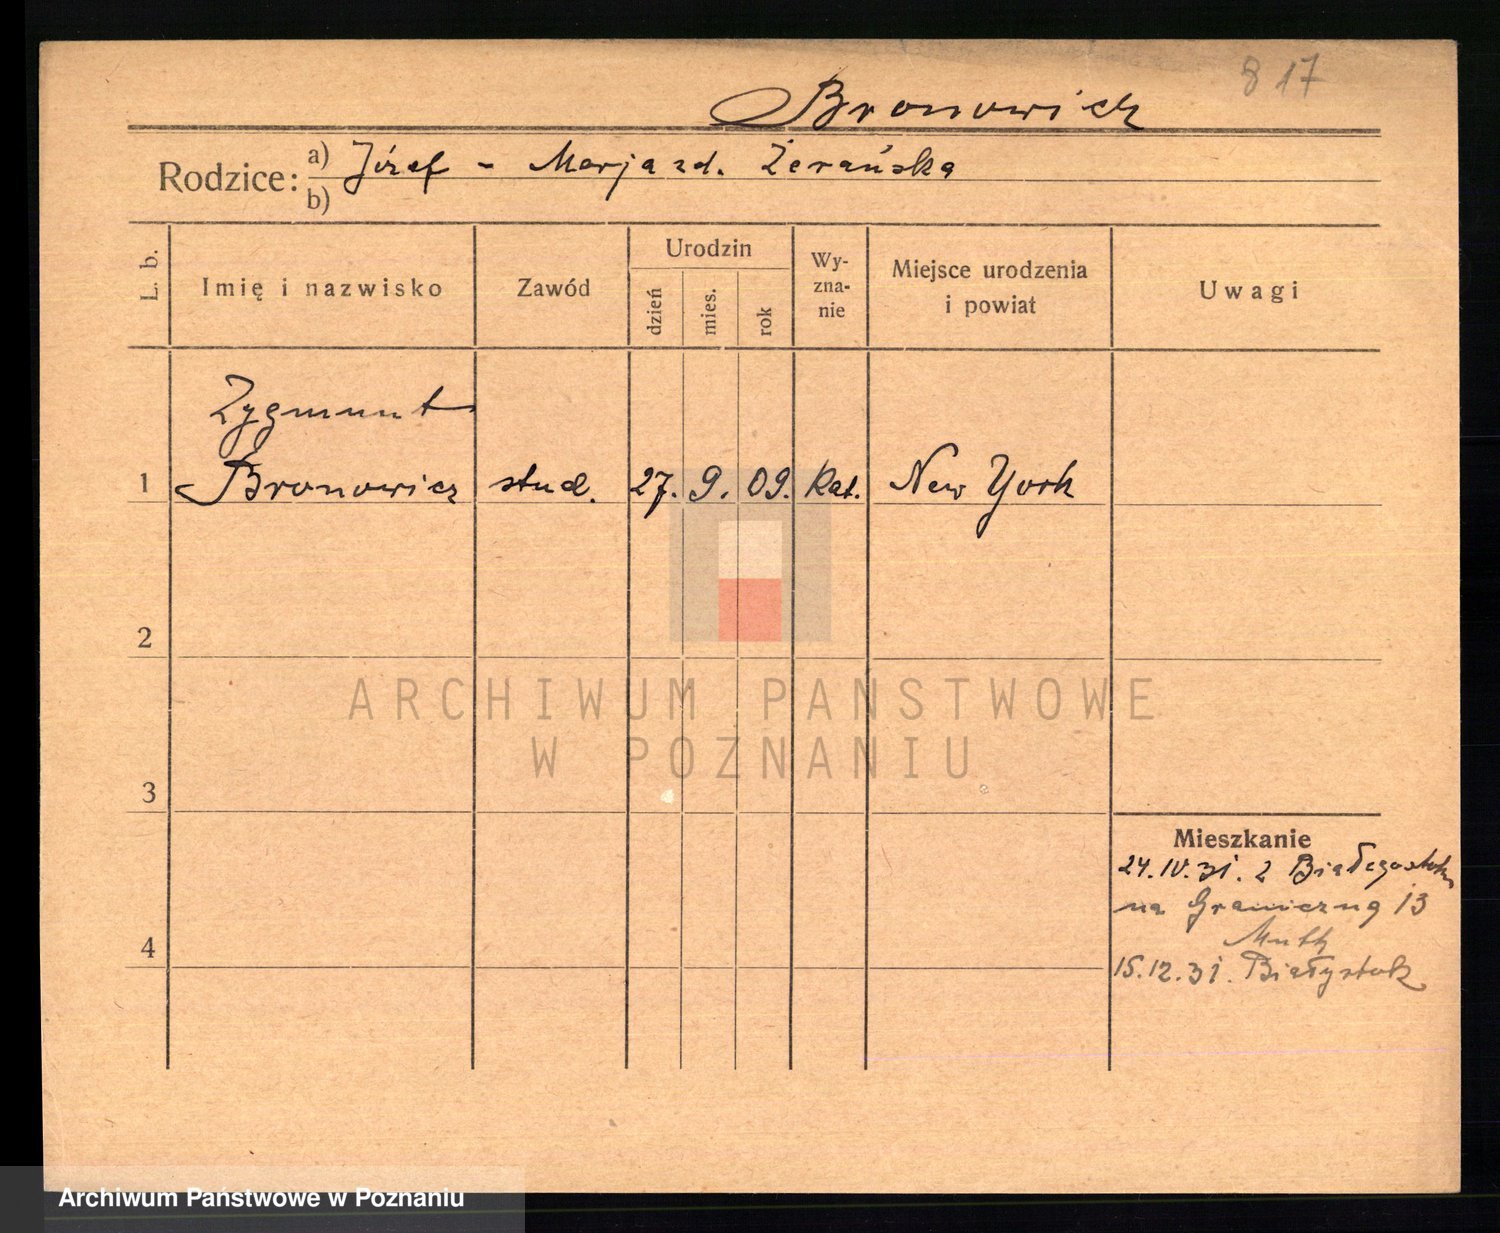 8 17
Bronowicz
Rodzice: a) Józef - Marja zd. Żerańska
b)
L. b.
Imię i nazwisko
Zawód
Urodzin
dzień
mies.
rok
Wy-
zna-
nie
Miejsce urodzenia
i powiat
Uwagi
Zygmunt
1 Bronowicz stud. 27. 9. 09. kat. New York
2
ARCHIWUM PAŃSTWOWE
W POZNANIU
3
Mieszkanie
24.IV.31. z Białegostoku
na Graniczną 13
4
15.12.31. Białystok
Archiwum Państwowe w Poznaniu